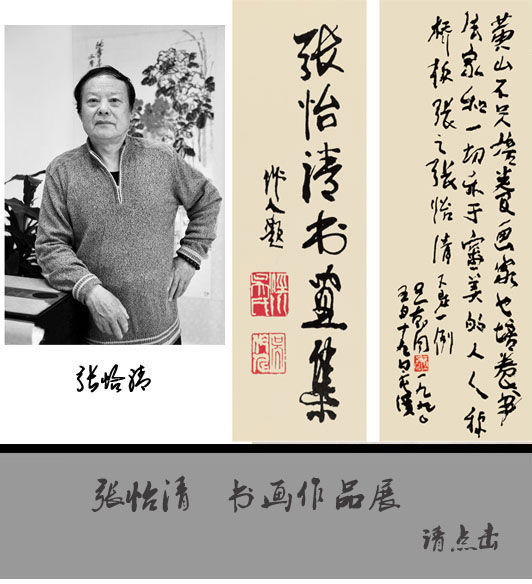 黄山不只培养画家也培养书
法家和一切于审美的人人称
桥板张之张怡清一例
一九九〇
张怡清书画集
作人题
张怡清
张怡清 书画作品展
请点击